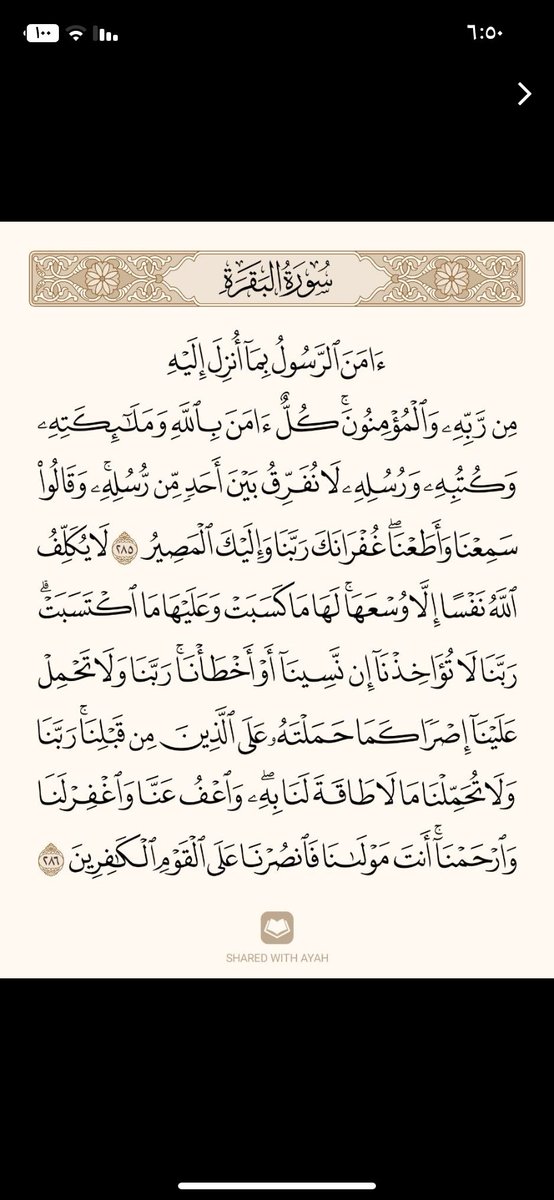 ١٠٠
٦:٥٠
سُورَةُ البَقَرَةِ
ءَامَنَ ٱلرَّسُولُ بِمَآ أُنزِلَ إِلَيْهِ
مِن رَّبِّهِۦ وَٱلْمُؤْمِنُونَۚ كُلٌّ ءَامَنَ بِٱللَّهِ وَمَلَـٰٓئِكَتِهِۦ
وَكُتُبِهِۦ وَرُسُلِهِۦ لَا نُفَرِّقُ بَيْنَ أَحَدٍ مِّن رُّسُلِهِۦۚ وَقَالُوا۟
سَمِعْنَا وَأَطَعْنَاۖ غُفْرَانَكَ رَبَّنَا وَإِلَيْكَ ٱلْمَصِيرُ ٢٨٥ لَا يُكَلِّفُ
ٱللَّهُ نَفْسًا إِلَّا وُسْعَهَاۚ لَهَا مَا كَسَبَتْ وَعَلَيْهَا مَا ٱكْتَسَبَتْۗ
رَبَّنَا لَا تُؤَاخِذْنَآ إِن نَّسِينَآ أَوْ أَخْطَأْنَاۚ رَبَّنَا وَلَا تَحْمِلْ
عَلَيْنَآ إِصْرًا كَمَا حَمَلْتَهُۥ عَلَى ٱلَّذِينَ مِن قَبْلِنَاۚ رَبَّنَا
وَلَا تُحَمِّلْنَا مَا لَا طَاقَةَ لَنَا بِهِۦۖ وَٱعْفُ عَنَّا وَٱغْفِرْ لَنَا
وَٱرْحَمْنَآۚ أَنتَ مَوْلَىٰنَا فَٱنصُرْنَا عَلَى ٱلْقَوْمِ ٱلْكَـٰفِرِينَ ٢٨٦
SHARED WITH AYAH